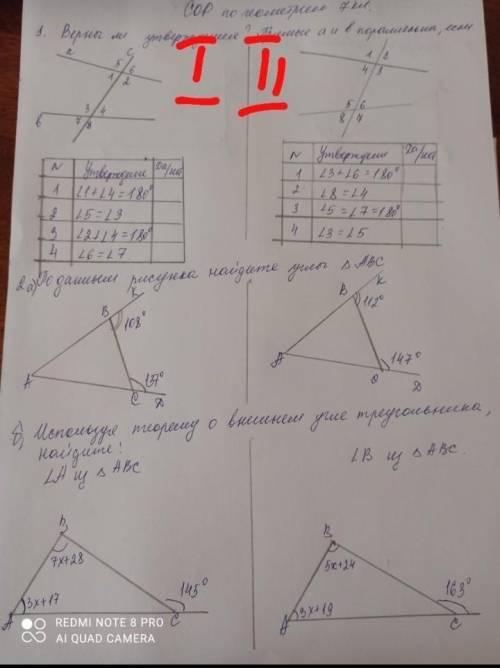 СОР по геометрии 7 кл.
1. Верны ли утверждения? Прямые а и в параллельны, если
I II
а с
5 6
1 2
3 4
7 8
в
1 2
4 3
5 6
8 7
N Утверждение Да/нет
1 ∠1+∠4=180°
2 ∠5=∠3
3 ∠2+∠4=180°
4 ∠6=∠7
N Утверждение Да/нет
1 ∠3+∠6=180°
2 ∠8=∠4
3 ∠5=∠7=180°
4 ∠3=∠5
2а) По данным рисунка найдите углы △ABC
K
B
108°
A
137°
C D
K
B
112°
A
147°
C D
б) Используя теорему о внешнем угле треугольника,
найдите:
∠A из △ABC
∠B из △ABC.
B
7x+28
145°
A 3x+17 C
B
5x+24
163°
A 3x+19 C
REDMI NOTE 8 PRO
AI QUAD CAMERA